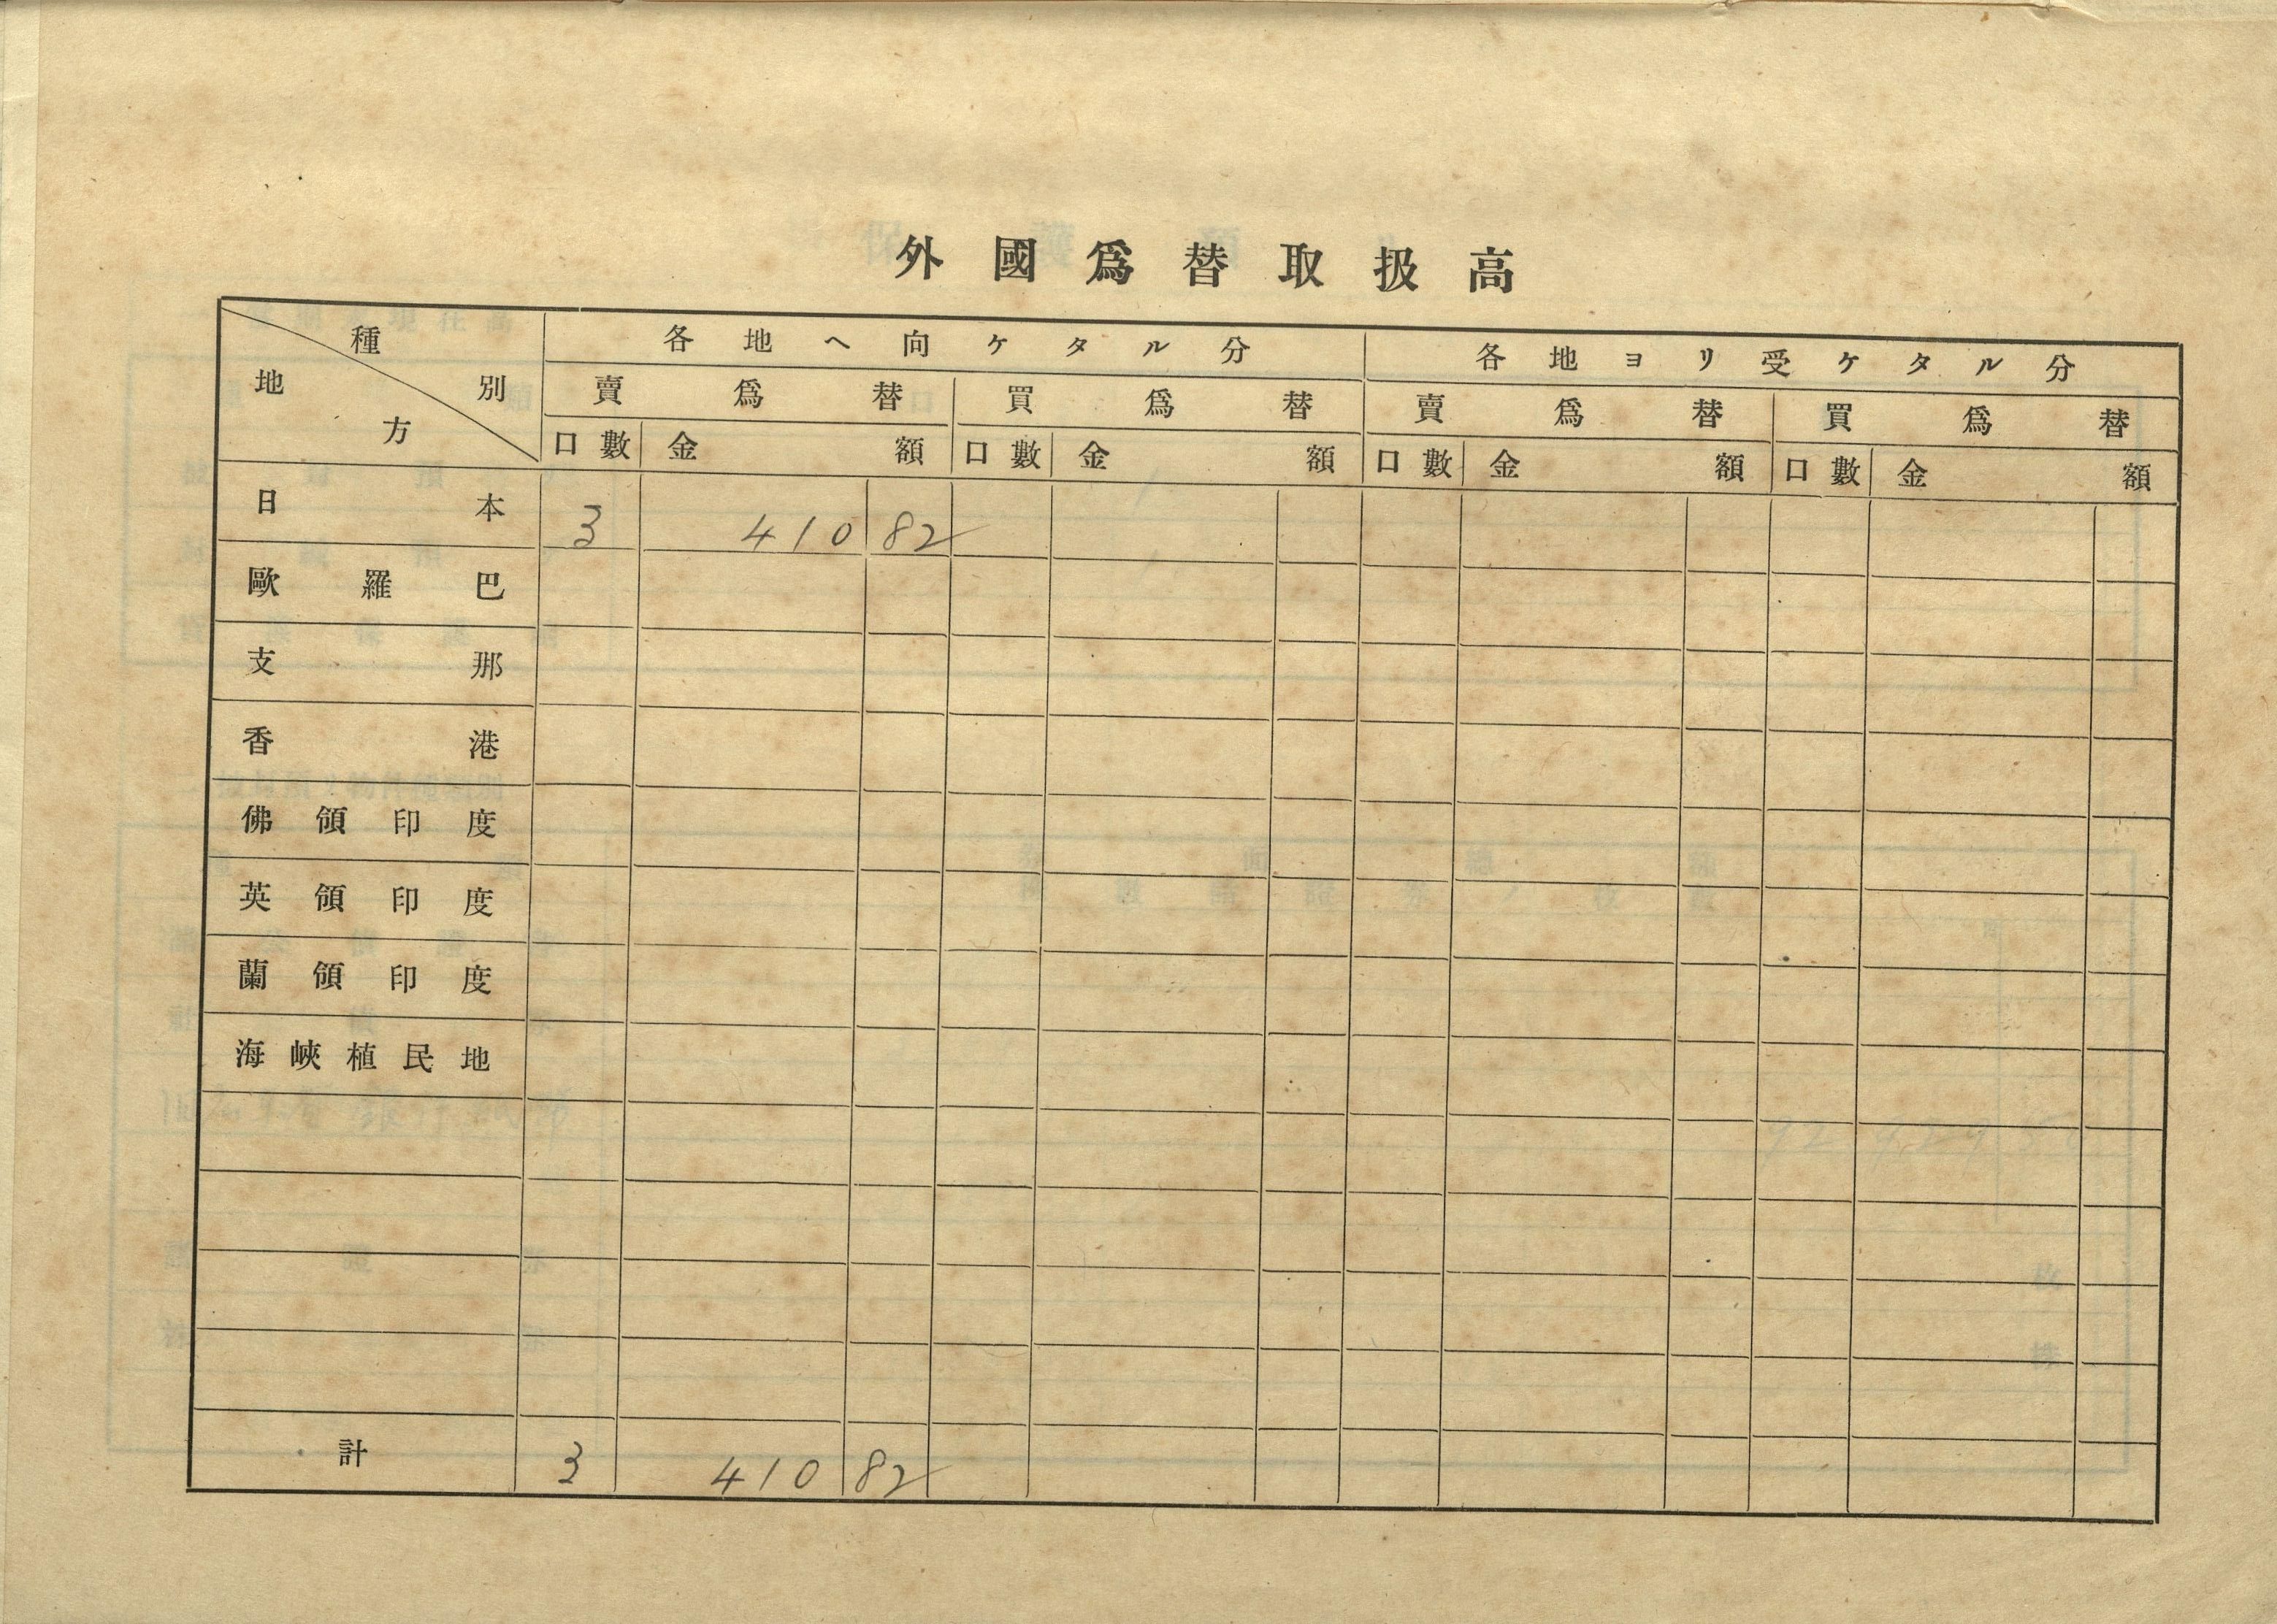 外國爲替取扱高
種別 地方 各地ヘ向ケタル分 各地ヨリ受ケタル分
賣爲替 買爲替 賣爲替 買爲替
口數 金額 口數 金額 口數 金額 口數 金額
日本 3 410 82
歐羅巴
支那
香港
佛領印度
英領印度
蘭領印度
海峽植民地
計 3 410 82